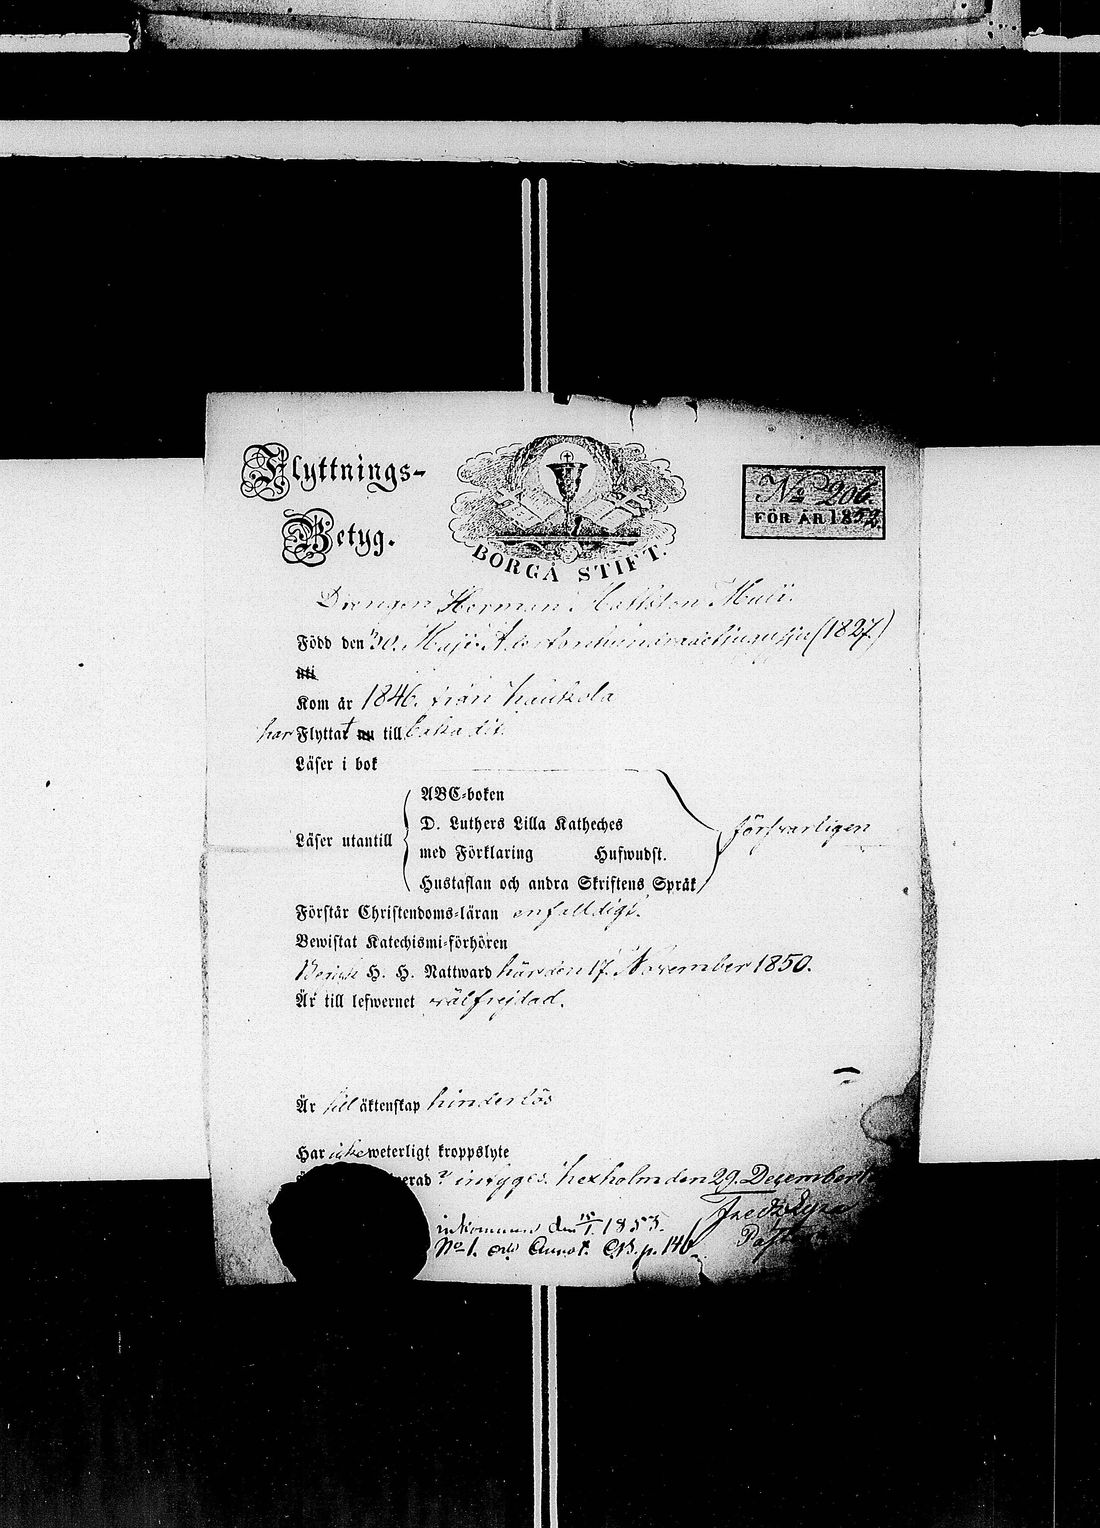 Flyttnings-
Betyg.
BORGÅ STIFT.
No 206.
FÖR ÅR 1852.
Drengen Herman Mattsson Muii.
Född den 30. Maji Adertonhundradetjugusju (1827.)
uti
Kom år 1846. från Kaukola
har Flyttat nu till baka dit.
Läser i bok
Läser utantill
ABC-boken
D. Luthers Lilla Katheches
med Förklaring Hufwudst.
Hustaflan och andra Skriftens Språk
försvarligen
Förstår Christendoms-läran enfaldigt.
Bewistat Katechismi-förhören
Begick H. H. Nattward här den 17. November 1850.
Är till lefwernet välfrejdad.
Är till äktenskap hinderlös
Har icke weterligt kroppslyte
erad? intygas. Kexholm den 29. December
Pastor
inkommen den 15/1. 1853.
No 1. Annot. p. 146.